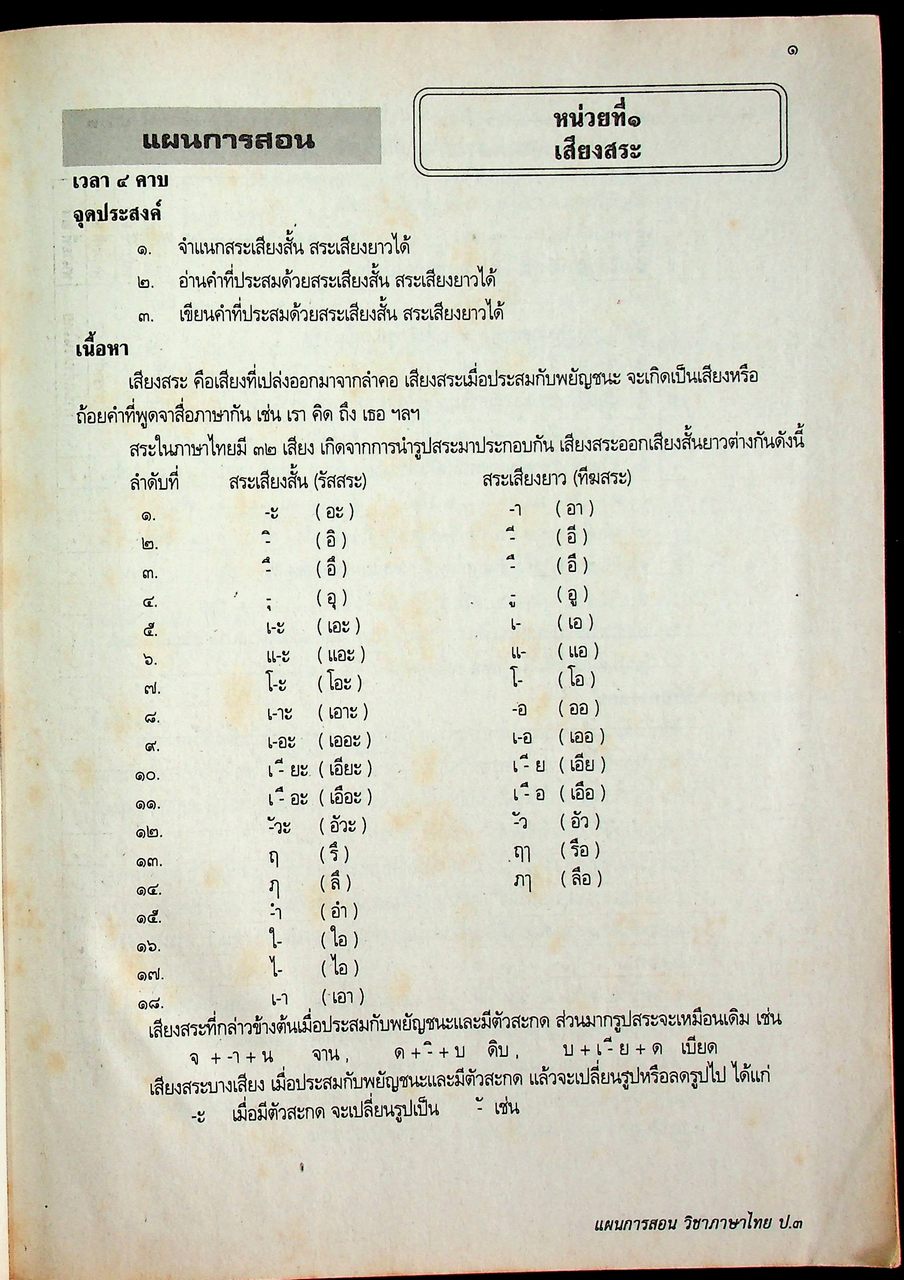 ๑
แผนการสอน
หน่วยที่๑
เสียงสระ
เวลา ๔ คาบ
จุดประสงค์
๑. จำแนกสระเสียงสั้น สระเสียงยาวได้
๒. อ่านคำที่ประสมด้วยสระเสียงสั้น สระเสียงยาวได้
๓. เขียนคำที่ประสมด้วยสระเสียงสั้น สระเสียงยาวได้
เนื้อหา
เสียงสระ คือเสียงที่เปล่งออกมาจากลำคอ เสียงสระเมื่อประสมกับพยัญชนะ จะเกิดเป็นเสียงหรือ
ถ้อยคำที่พูดจาสื่อภาษากัน เช่น เรา คิด ถึง เธอ ฯลฯ
สระในภาษาไทยมี ๓๒ เสียง เกิดจากการนำรูปสระมาประกอบกัน เสียงสระออกเสียงสั้นยาวต่างกันดังนี้
ลำดับที่ สระเสียงสั้น (รัสสระ) สระเสียงยาว (ทีฆสระ)
๑. -ะ (อะ) -า (อา)
๒. -ิ (อิ) -ี (อี)
๓. -ึ (อึ) -ื (อื)
๔. -ุ (อุ) -ู (อู)
๕. เ-ะ (เอะ) เ- (เอ)
๖. แ-ะ (แอะ) แ- (แอ)
๗. โ-ะ (โอะ) โ- (โอ)
๘. เ-าะ (เอาะ) -อ (ออ)
๙. เ-อะ (เออะ) เ-อ (เออ)
๑๐. เ-ียะ (เอียะ) เ-ีย (เอีย)
๑๑. เ-ือะ (เอือะ) เ-ือ (เอือ)
๑๒. -ัวะ (อัวะ) -ัว (อัว)
๑๓. ฤ (รึ) ฤๅ (รือ)
๑๔. ฦ (ลึ) ฦๅ (ลือ)
๑๕. -ำ (อำ)
๑๖. ใ- (ใอ)
๑๗. ไ- (ไอ)
๑๘. เ-า (เอา)
เสียงสระที่กล่าวข้างต้นเมื่อประสมกับพยัญชนะและมีตัวสะกด ส่วนมากรูปสระจะเหมือนเดิม เช่น
จ + -า + น จาน , ด + -ิ + บ ดิบ , บ + เ-ีย + ด เบียด
เสียงสระบางเสียง เมื่อประสมกับพยัญชนะและมีตัวสะกด แล้วจะเปลี่ยนรูปหรือลดรูปไป ได้แก่
-ะ เมื่อมีตัวสะกด จะเปลี่ยนรูปเป็น -ั เช่น
แผนการสอน วิชาภาษาไทย ป.๓